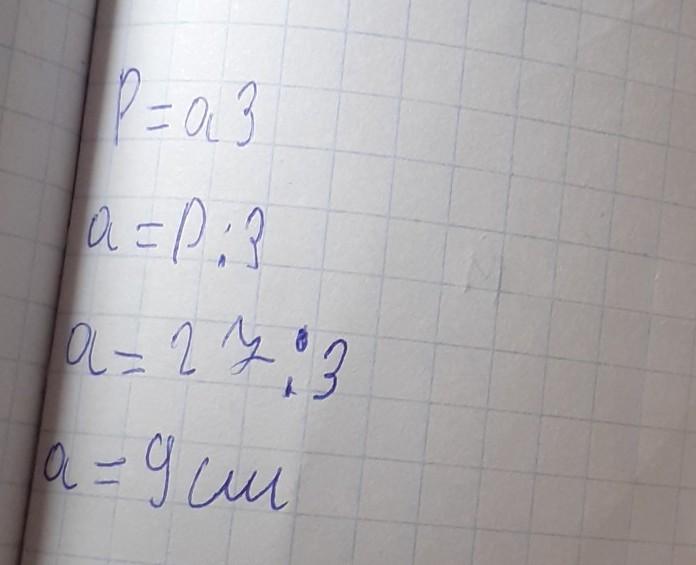 P = a 3
a = P : 3
a = 27 : 3
a = 9 cm